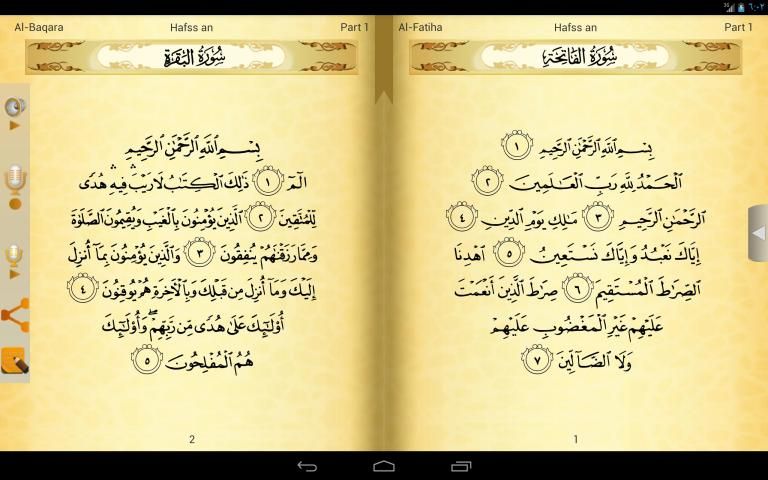 ٦:٠٢
Al-Fatiha Hafss an Part 1
سُورَةُ الفَاتِحَةِ
بِسْمِ اللَّهِ الرَّحْمَٰنِ الرَّحِيمِ ١
الْحَمْدُ لِلَّهِ رَبِّ الْعَالَمِينَ ٢
الرَّحْمَٰنِ الرَّحِيمِ ٣ مَالِكِ يَوْمِ الدِّينِ ٤
إِيَّاكَ نَعْبُدُ وَإِيَّاكَ نَسْتَعِينُ ٥ اهْدِنَا
الصِّرَاطَ الْمُسْتَقِيمَ ٦ صِرَاطَ الَّذِينَ أَنْعَمْتَ
عَلَيْهِمْ غَيْرِ الْمَغْضُوبِ عَلَيْهِمْ
وَلَا الضَّالِّينَ ٧
1
Al-Baqara Hafss an Part 1
سُورَةُ البَقَرَةِ
بِسْمِ اللَّهِ الرَّحْمَٰنِ الرَّحِيمِ
الٓمٓ ١ ذَٰلِكَ الْكِتَٰبُ لَا رَيْبَ ۛ فِيهِ ۛ هُدًى
لِّلْمُتَّقِينَ ٢ الَّذِينَ يُؤْمِنُونَ بِالْغَيْبِ وَيُقِيمُونَ الصَّلَوٰةَ
وَمِمَّا رَزَقْنَٰهُمْ يُنفِقُونَ ٣ وَالَّذِينَ يُؤْمِنُونَ بِمَآ أُنزِلَ
إِلَيْكَ وَمَآ أُنزِلَ مِن قَبْلِكَ وَبِالْآخِرَةِ هُمْ يُوقِنُونَ ٤
أُوْلَٰٓئِكَ عَلَىٰ هُدًى مِّن رَّبِّهِمْ ۖ وَأُوْلَٰٓئِكَ
هُمُ الْمُفْلِحُونَ ٥
2